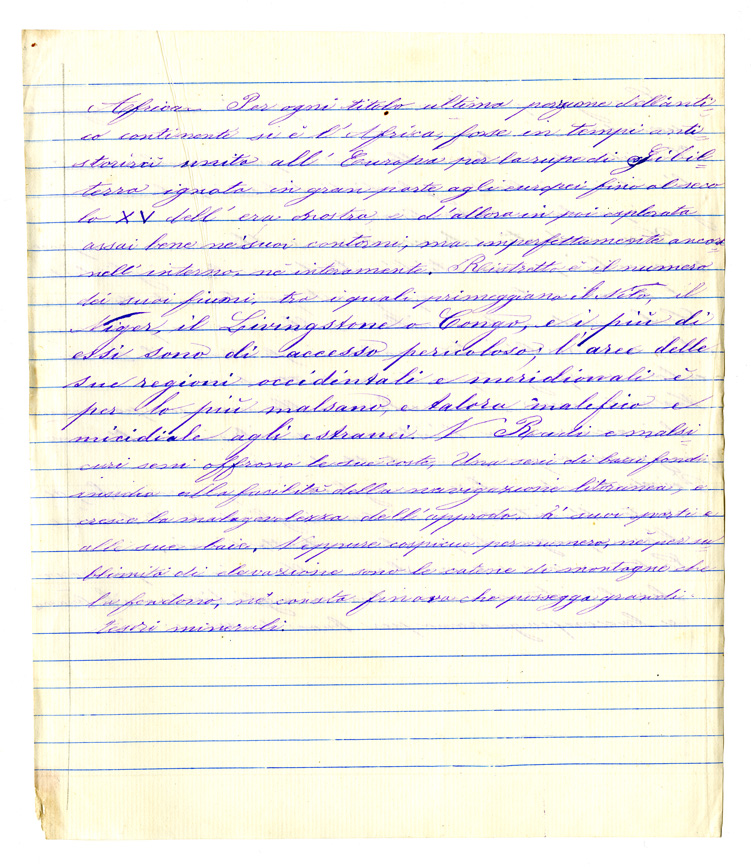 Africa. Per ogni titolo ultima porzione dell'anti
co continente si è l'Africa, forse in tempi anti
storici unita all'Europa per la rupe di Gibil=
terra ignota in gran parte agli europei fino al seco
lo XV dell'era nostra e d'allora in poi esplorata
assai bene ne' suoi contorni, ma imperfettamente ancora
nell'interno, nè interamente. Ristretto è il numero
dei suoi fiumi, tra i quali primeggiano il Nilo, il
Niger, il Livingstone o Congo, e i più di
essi sono di accesso pericoloso; l'aree delle
sue regioni occidintali e meridionali è
per lo più malsano, e talora malefico e
micidiale agli estranei. Radi e malsi
curi seni offrono le sue coste, Una seri di bassi fondi
insidia alla facilità della navigazione literanea, e
cresce la malagevolezza dell'approdo. A' suoi porti e
alle sue baie. Neppure cospicue per numero, nè per su
blimità di elevazione sono le catene di montagne che
la fendono, nè consta finora che possegga grandi
tesori minerali.